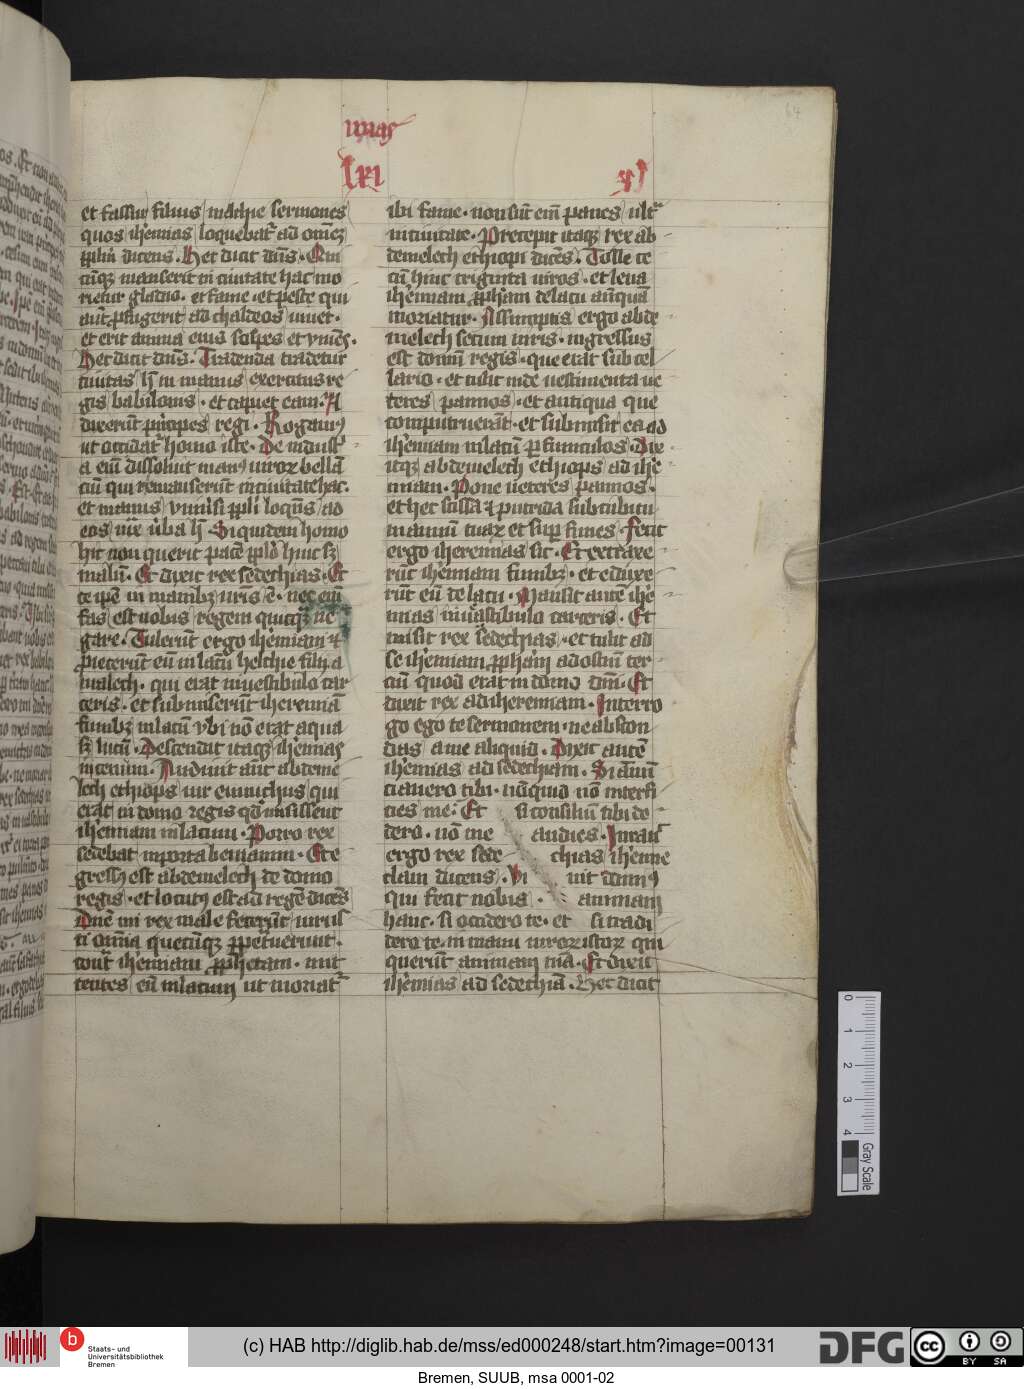 mias
lxi
64
et fassur filius melchie sermones
quos ih'emias loquebat' ad omnez
pplm dicens . Hec dicit dns . Qui
cūqz manserit in ciuitate hac mo
rietur gladio . et fame . et peste qui
aūt pfugerit ad chaldeos uiuet .
et erit anima eius sospes et viuēs .
Hec dicit dns . Tradenda tradetur
ciuitas h' in manus exercitus re
gis babilonis . et capiet eam . Et
dixerūt pncipes regi . Rogam9
ut occidat' homo iste . De indust'
a eni dissoluit man9 uiroꝝ bellā
ciū qui remanserūt in ciuitate hac .
et manus vniusi ppli loqns ad
eos iux ūba h' Siquidem homo
hic non querit pacē pplo huic sz
malū . Et dixit rex sedechias . Ec
ce ipe in manibz uris ē . nec eni
fas est uobis regem quicqz ne
gare . Tulerūt ergo ih'emiam et
piecerūt eū in lacū helchie filij a
malech . qui erat in uestibulo car
ceris . et submiserūt iheremiā
funibz in lacū vbi nō erat aqua
sz lutū . Descendit itaqz ih'emias
in cenum . Audiuit aūt abdeme
lech ethiops uir eunuchus qui
erat in domo regis qd misissent
ih'emiam in lacum . Porro rex
sedebat in porta beniamin . Et e
gress9 est abdemelech de domo
regis . et locut9 est ad regē dicēs
Dnē mi rex male fecerūt uiri isti
omnia quecūqz ppetrerunt .
cont' ih'emiam pphetam . mit
tentes eū in lacum ut moriat'
ibi fame . non sūt eni panes ult'
in ciuitate . Precepit itaqz rex ab
demelech ethiopi dicēs . Tolle te
cū hinc triginta uiros . et leua
ih'emiam ppham de lacu anquā
moriatur . Assumptis ergo abde
melech secum uiris . ingressus
est domū regis . que erat sub cel
lario . et tulit inde uestimenta ue
teres pannos . et antiqua que
computruerāt . et submisit ea ad
ih'emiam in lacū p funiculos . Dix
itqz abdemelech ethiops ad ihe
miam . Pone ueteres pannos .
et hec scissa et putrida sub cubitu
manuū tuaꝝ et sup funes . Fecit
ergo iheremias sic . Et extraxe
rūt ih'emiam funibz . et eduxe
rūt eū de lacu . Mansit autē ihe
mias in uestibulo carceris . Et
misit rex sedechias . et tulit ad
se ih'emiam ppham ad ostiū ter
ciū quod erat in domo dni . Et
dixit rex ad iheremiam . Interro
go ego te sermonem . ne abscon
das a me aliquid . Dixit autē
ih'emias ad sedechiam . Si annū
ciauero tibi . nūquid nō interfi
cies me . Et si consiliū tibi de
dero . nō me audies . Iurauit
ergo rex sede chias ih'emie
clam dicens . Vi uit domin9
qui fecit nobis . animam
hanc . si occidero te . et si tradi
dero te . in manu uiroꝝ istoꝝ qui
querūt animam tuā . Et dixit
ih'emias ad sedechiā . Hec dicit
0
1
2
3
4
Gray Scale
b
Staats- und
Universitätsbibliothek
Bremen
(c) HAB http://diglib.hab.de/mss/ed000248/start.htm?image=00131
DFG
cc
BY SA
Bremen, SUUB, msa 0001-02